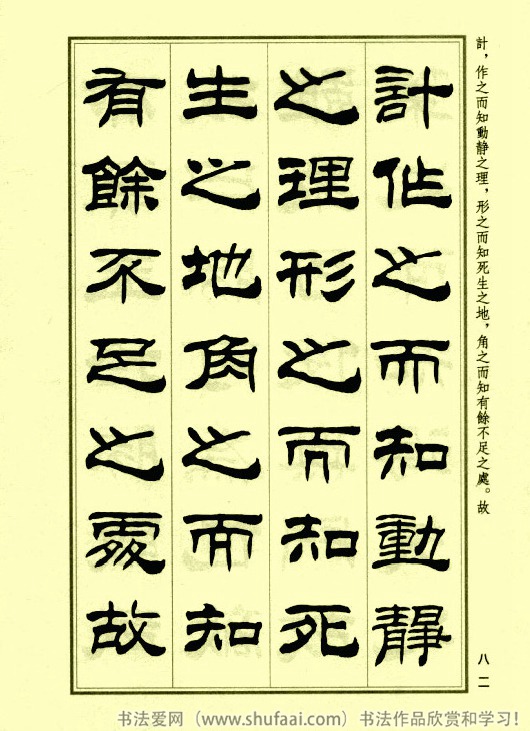 計，作之而知動静之理，形之而知死生之地，角之而知有餘不足之處。故
計作之而知動静
之理形之而知死
生之地角之而知
有餘不足之處故
八二
书法爱网（www.shufaai.com）书法作品欣赏和学习！